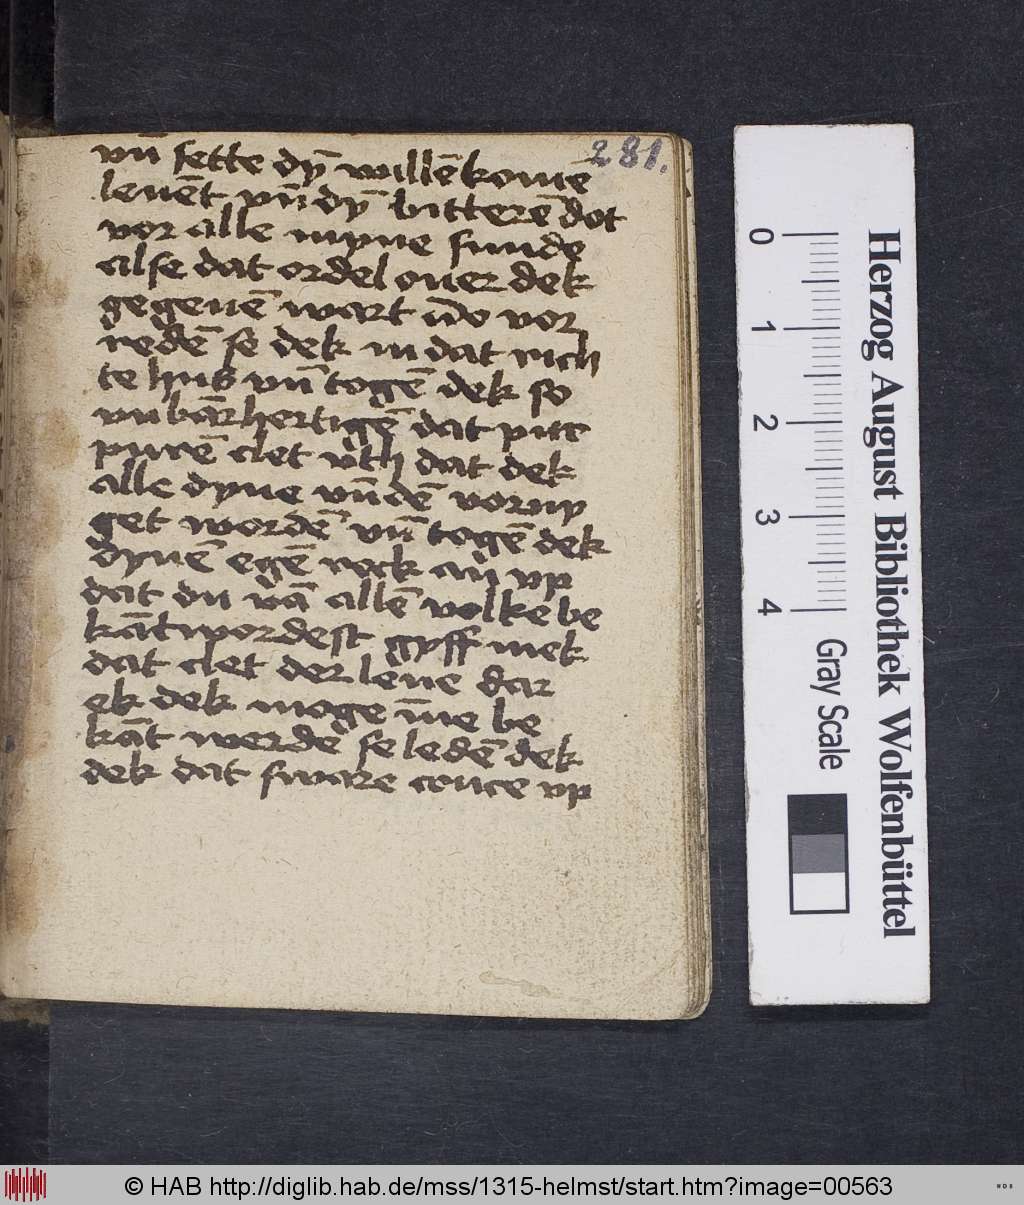 281.
vn sette dȳ willēkome̅
leuēt vn̄ dȳ bitterē dot
vor alle myne sunde
alse dat ordel ouer dek
gegeuē wart do vor
redē se dek in dat rich
te hus vn̄ togē dek so
vnbārhertigē dat pur
purē clet vth dat dek
alle dyne vūdē vorny
get wordē vn̄ togē dek
dynē egē rock an vp
dat du vā allē volke be
kāt wordest gyff mek
dat clet der leue dar
ek dek moge īne be
kāt werdē se ledē dek
dek dat sware cruce vp
0 1 2 3 4
Herzog August Bibliothek Wolfenbüttel
Gray Scale
© HAB http://diglib.hab.de/mss/1315-helmst/start.htm?image=00563